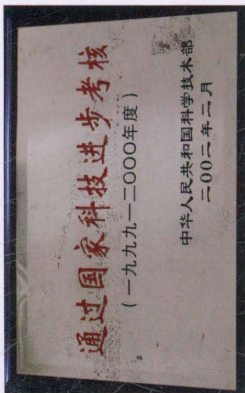 通过国家科技进步考核
(一九九九一二000年度)
中华人民共和国科学技术部
二00二年二月